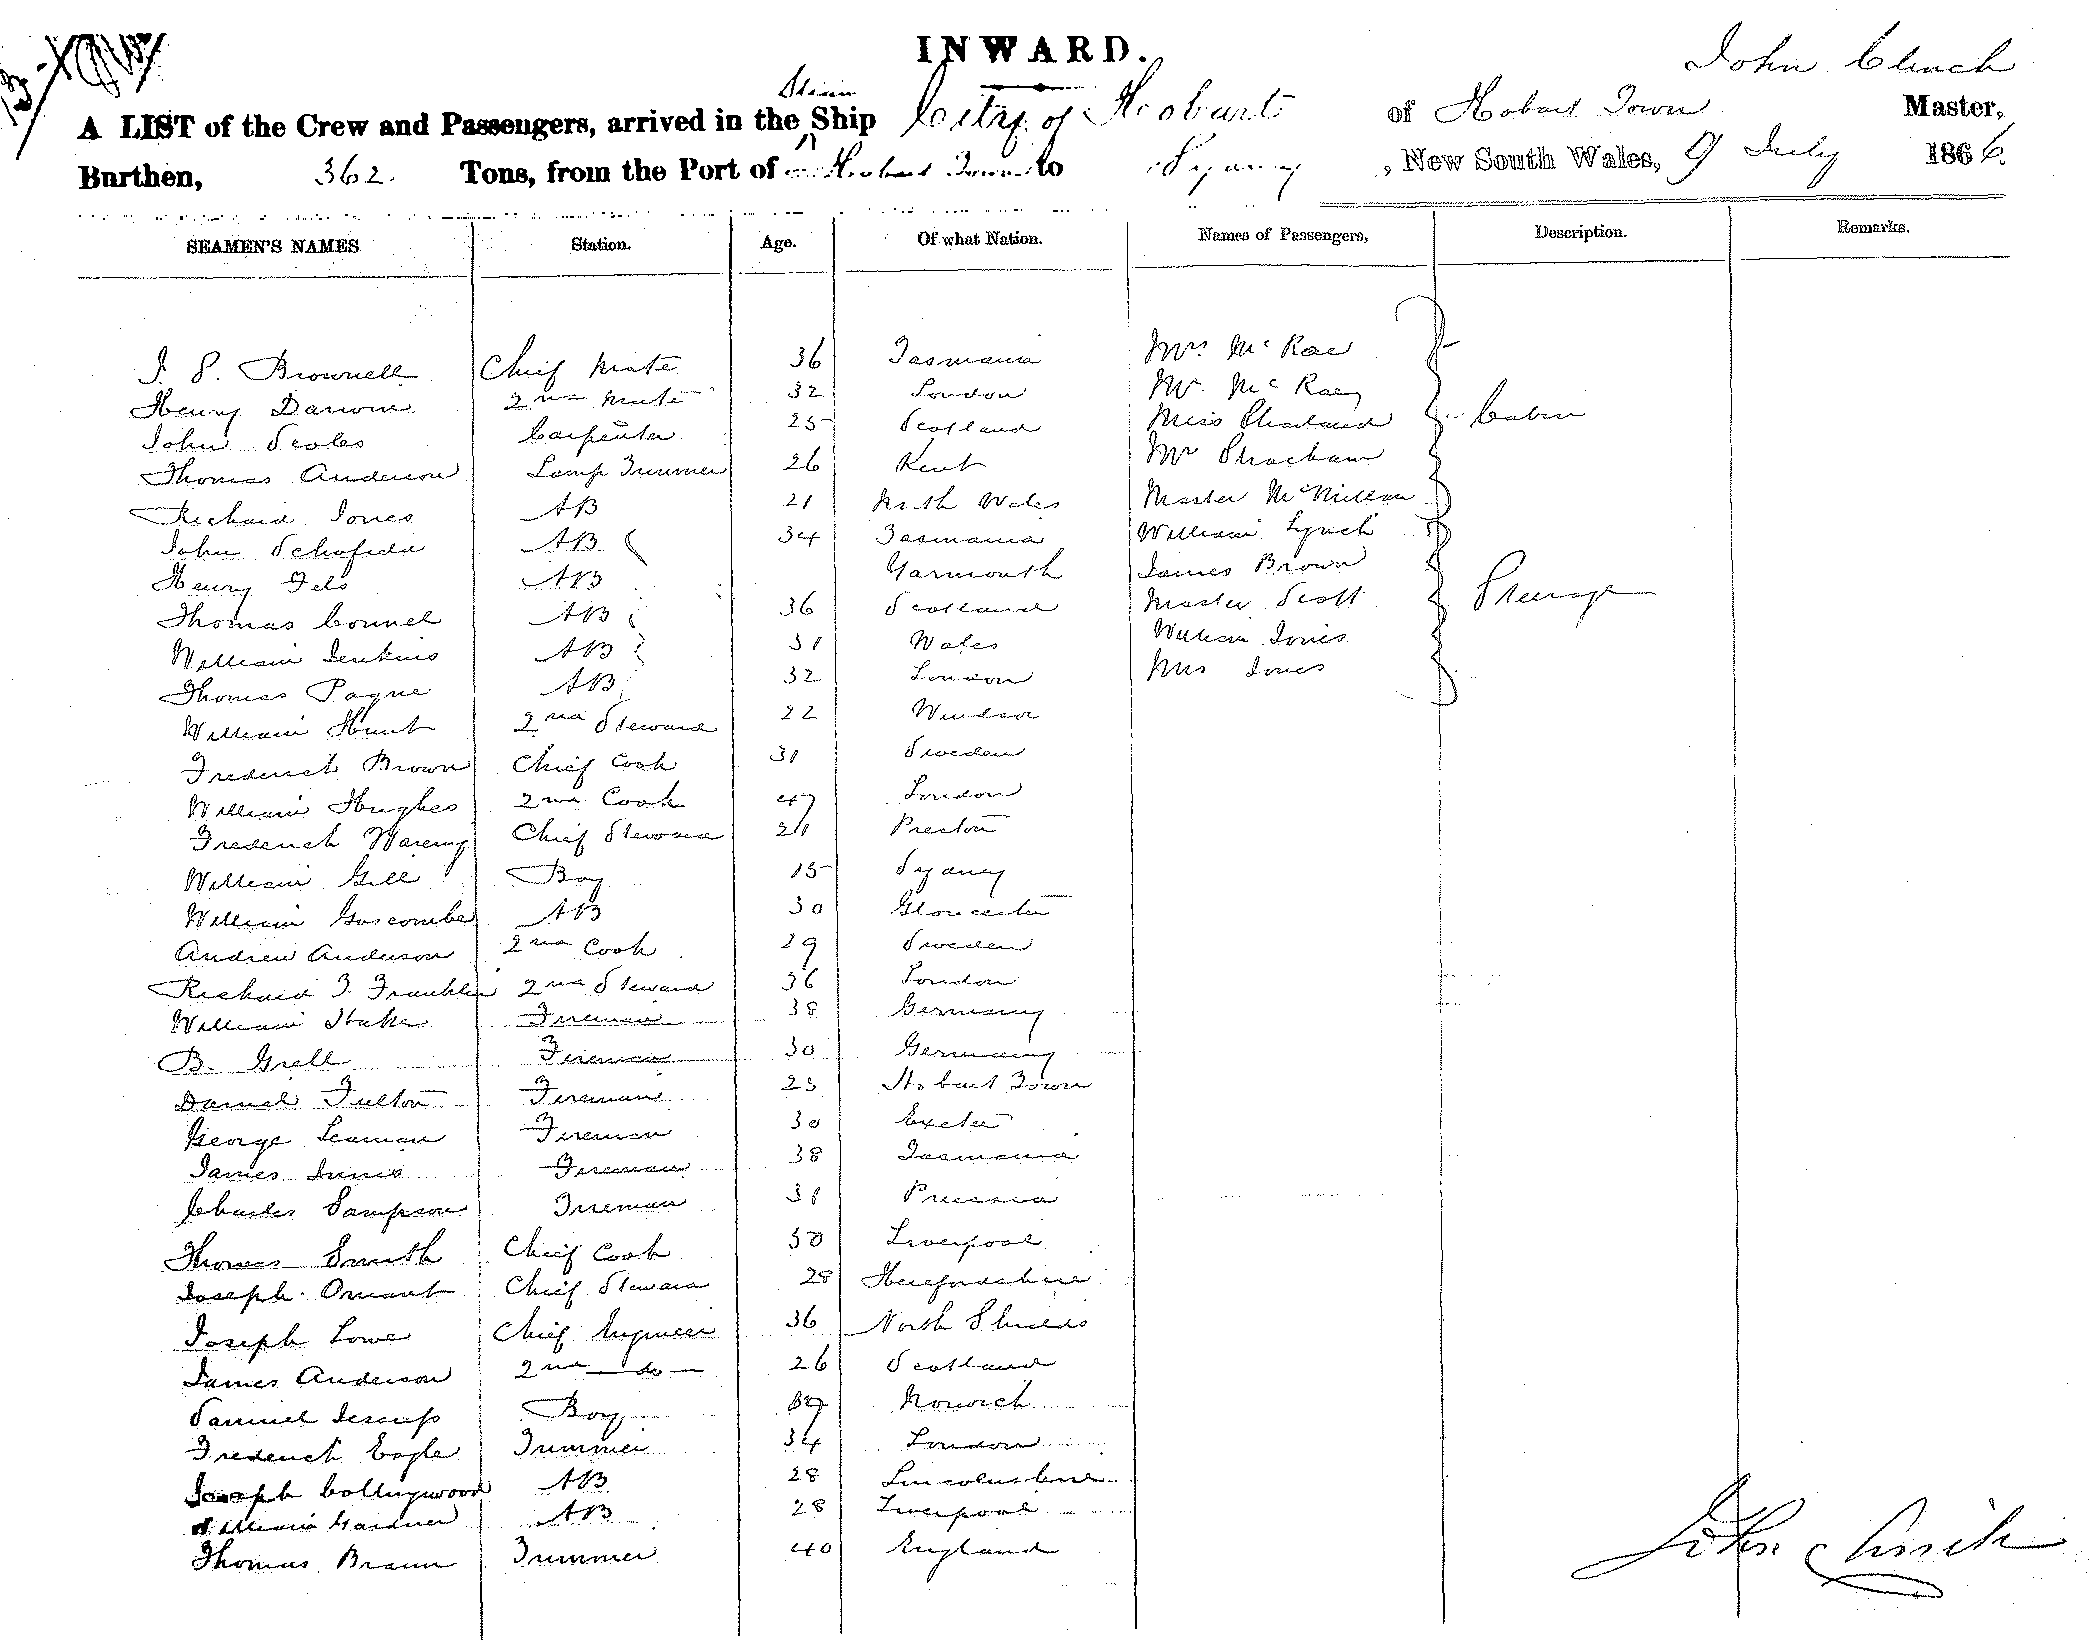 INWARD.
John Clinch
A LIST of the Crew and Passengers, arrived in the Steam Ship City of Hobart of Hobart Town Master,
Burthen, 362 Tons, from the Port of Hobart Town to Sydney, New South Wales, 9 July 1866.
SEAMEN'S NAMES Station. Age. Of what Nation. Names of Passengers, Description. Remarks.
J. S. Brownell Chief Mate 36 Tasmania Mrs McRae
Henry 2nd Mate 32 London Mr McRae
John Scoles Carpenter 25 Scotland Miss Cabin
Thomas Anderson Lamp Trimmer 26 Kent Mr Strachan
Richard Jones AB 21 North Wales Master McMillan
John Schofield AB 34 Tasmania William Lynch
Henry AB Yarmouth James Brown
Thomas Connel AB 36 Scotland Master Scott Steerage
William Jenkins AB 31 Wales William Jones
Thomas Payne AB 32 London Mrs Jones
William Hunt 2nd Steward 22 Windsor
Frederick Brown Chief Cook 31 Sweden
William Hughes 2nd Cook 47 London
Frederick Wareing Chief Steward Preston
William Gill Boy 15 Sydney
William Goscombe AB 30 Gloucester
Andrew Anderson 2nd Cook 29 Sweden
Richard T. Franklin 2nd Steward 36 London
William Fireman 38 Germany
B. Grell Fireman 30 Germany
Daniel Fulton Fireman 25 Hobart Town
George Leaman Fireman 30 Exeter
James Innis Fireman 38 Tasmania
Charles Sampson Fireman 31 Prussia
Thomas Smith Chief Cook 30 Liverpool
Joseph Chief Steward 28 Herefordshire
Joseph Lowe Chief Engineer 36 North Shields
James Anderson 2nd do 26 Scotland
Samuel Boy Norwich
Frederick Eagle Trimmer 34 London
Joseph Collingwood AB 28 Lincolnshire
William Gardner AB 28 Liverpool
Thomas Braun Trimmer 40 England
John Clinch